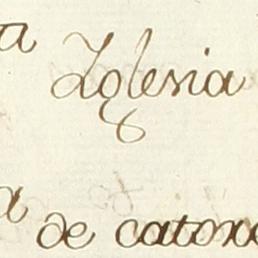 a Iglesia
a de catorce